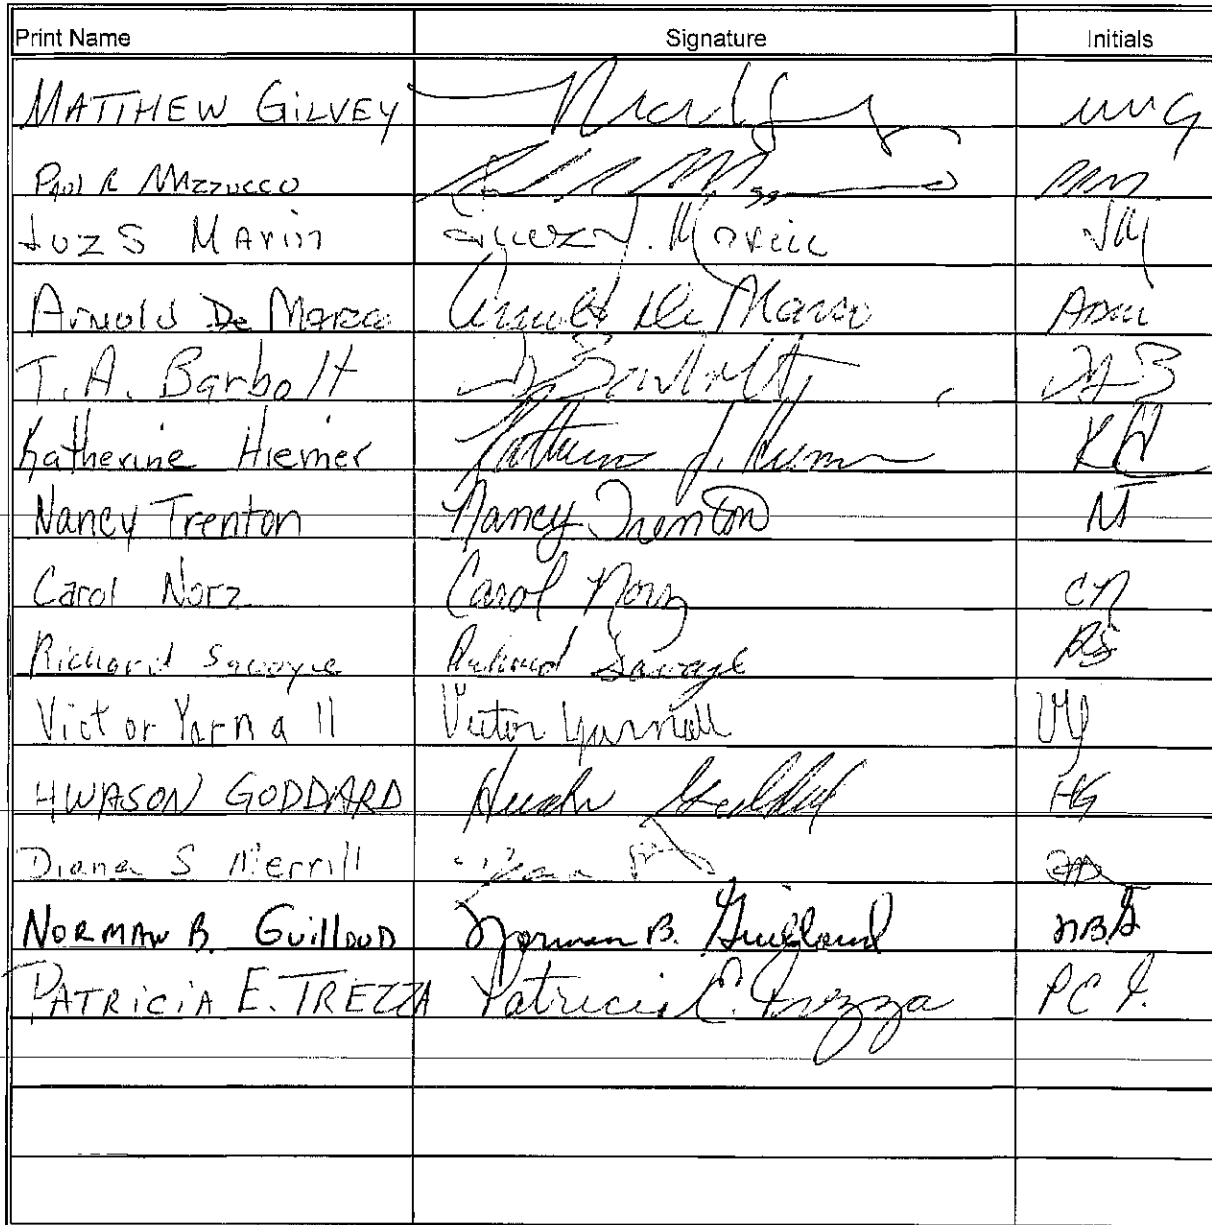 Print Name Signature Initials
MATTHEW GILVEY
Paul R Mazzucco
Luz S Marin
Arnold De Marco Arnold De Marco ADM
T.A. Barbolt TAB
Katherine Hiemer KH
Nancy Trenton Nancy Trenton NT
Carol Norz Carol Norz CN
Richard Savoye RS
Victor Yarnall Victor Yarnall VY
HWASON GODDARD HG
Diana S Merrill
NORMAN B. GUILLOUD Norman B. Guilloud NBG
PATRICIA E. TREZZA Patricia E. Trezza PET.